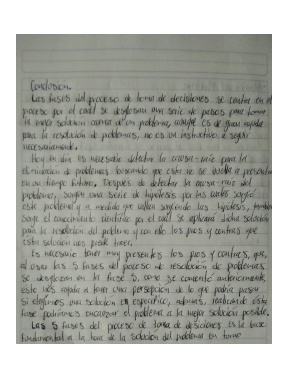 Conclusion.
Las fases del proceso de toma de decisiones se centra en el
proceso por el cual se desglosan una serie de pasos para tomar
la mejor solucion acerca de un problema, aunque es de gran ayuda
para la resolución de problemas, no es un instructivo a seguir
necesariamente.
Hoy en dia es necesario detectar la causa raiz para la
eliminación de problemas buscando que esta no se vuelva a presentar
en un tiempo futuro, Despues de detectar la causa raiz del
problema, sigue una serie de hipotesis por las cuales surgio
este problema y a medida que vallan surgiendo las hipotesis, tambien
surge el conocimiento cientifico por el cual se aplicará dicha solución
para la resolucion del problema y con ello los pros y contras que
esta solucion nos puede traer.
Es necesario tener muy presentes los pros y contras, que,
al usar las 5 fases del proceso de resolución de problemas
se desglosan en la fase 5, como se comentó anteriormente,
esto nos ayuda a tener una percepción de lo que podria pasar
si elegimos una solución en especifico, ademas, realizando esta
fase podriamos encaminar el problema a la mejor solución posible.
Las 5 fases del proceso de toma de desiciones, es la base
fundamental a la hora de la solución del problema en torno